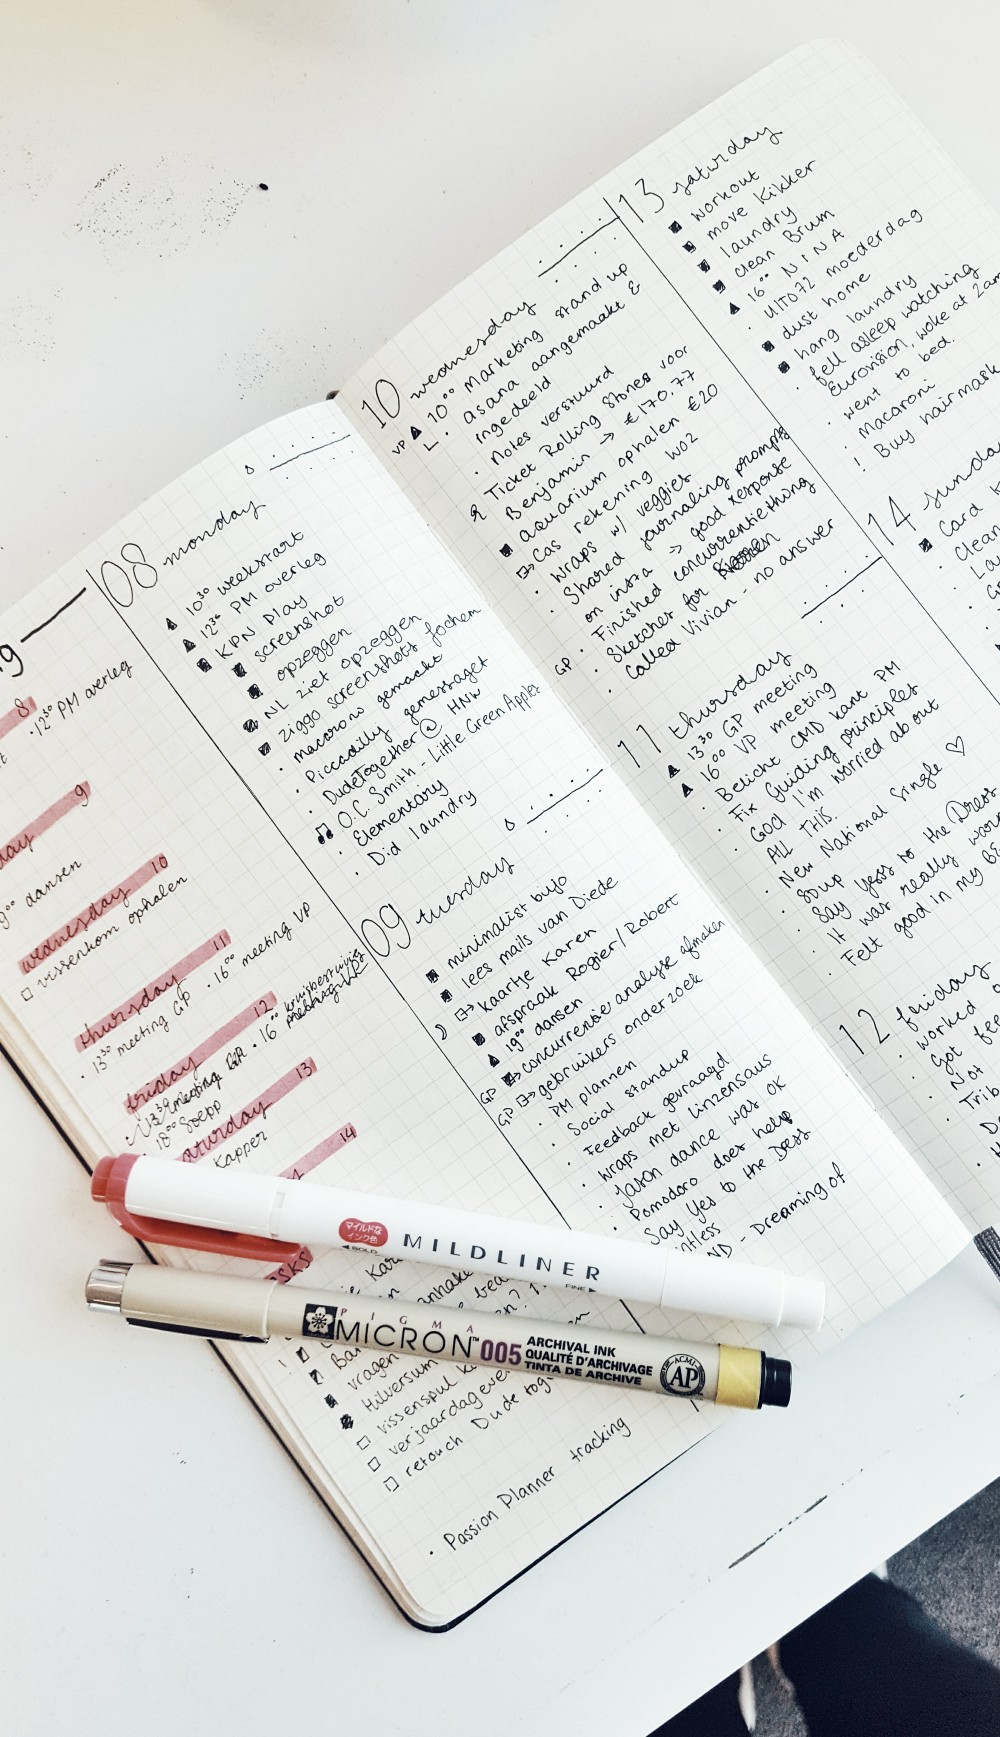 8
· 12³⁰ PM overleg
9
day
19⁰⁰ dansen
wednesday 10
□ vissenkom ophalen
thursday 11
· 13³⁰ meeting GP · 16⁰⁰ meeting VP
friday 12
18⁰⁰ Soepp
· 16⁰⁰ kruisbestuiving
saturday 13
Kapper
14
vragen
Hilversum
□ vissenspul
□ verjaardag
□ retouch Dude tog
· Passion Planner tracking
08 monday
▲ 10³⁰ weekstart
▲ 12³⁰ PM overleg
■ KPN Play
■ screenshot
■ opzeggen
■ NL ziet opzeggen
■ Ziggo screenshots Jochem
· macarons gemaakt
· Piccadilly gemessaget
· DudeTogether @ HNW
♫ O.C. Smith - Little Green Apples
· Elementary
· Did laundry
09 tuesday
■ minimalist bujo
■ lees mails van Diede
kaartje Karen
■ afspraak Rogier/Robert
▲ 19⁰⁰ dansen
GP concurrentie analyse afmaken
GP gebruikers onderzoek
· PM plannen
· Social standup
· Feedback gevraagd
· Wraps met linzensaus
· Jason dance was OK
· Pomodoro does help
· Say Yes to the Dress
ND - Dreaming of
10 wednesday
VP ▲ 10⁰⁰ Marketing stand up
L · asana aangemaakt &
ingedeeld
· Notes verstuurd
· Ticket Rolling Stones voor
Benjamin → €170,77
■ aquarium ophalen €20
Cas rekening WO2
· Wraps w/ veggies
· Shared journaling prompts
on insta → good response
· Finished concurrentiething
GP · Sketcher for
· Called Vivian - no answer
11 thursday
▲ 13³⁰ GP meeting
▲ 16⁰⁰ VP meeting
· Belicht CMD kant PM
· Fix Guiding principles
· God I'm worried about
ALL THIS.
· New National single ♡
· Soup
· Say Yess to the Dress
· It was really warm
· Felt good in my
12 friday
· Worked
· Got
· Not
· Trib
13 saturday
■ workout
■ move Kikker
■ laundry
■ clean Brum
▲ 16⁰⁰ NINA
· UIT072 moederdag
■ dust home
■ hang laundry
· fell asleep watching
Eurovision, woke at 2am
went to bed.
· Macaroni
! Buy hairmask
14 sunday
■ Card
clean
マイルドな
インク色
◄BOLD
MILDLINER
FINE►
PIGMA
MICRON™ 005
ARCHIVAL INK
QUALITÉ D'ARCHIVAGE
TINTA DE ARCHIVE
ACMI
AP